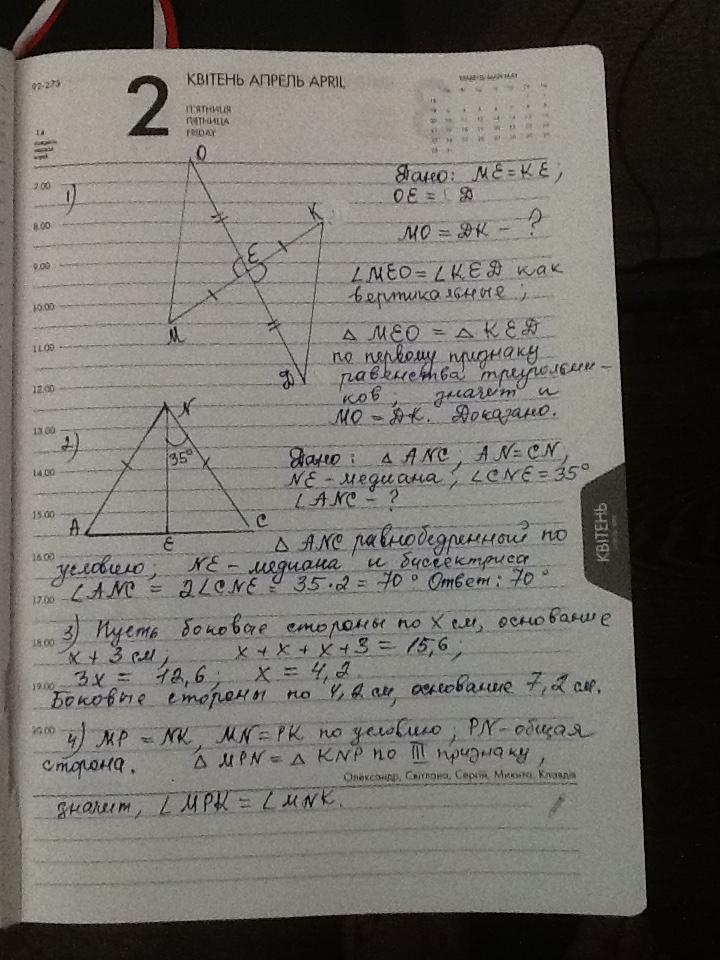 92-273
2
КВІТЕНЬ АПРЕЛЬ APRIL
П'ЯТНИЦЯ
ПЯТНИЦА
FRIDAY
14
1)
7.00
8.00
9.00
10.00
11.00
12.00
13.00
14.00
15.00
16.00
17.00
18.00
19.00
20.00
O
K
E
M
D
Дано: ME=KE;
OE = D
MO = DK - ?
∠MEO=∠KED как
вертикальные;
△ MEO = △ KED
по первому признаку
равенства треугольни-
ков; значит и
MO = DK. Доказано.
2)
N
35°
A
E
C
Дано: △ ANC; AN=CN,
NE - медиана, ∠CNE = 35°
∠ANC - ?
△ ANC равнобедренный по
условию; NE - медиана и биссектриса
∠ANC = 2∠CNE = 35·2 = 70° Ответ: 70°
3) Пусть боковые стороны по x см, основание
x + 3 см; x + x + x + 3 = 15,6;
3x = 12,6; x = 4,2
Боковые стороны по 4,2 см, основание 7,2 см.
4) MP = NK, MN = PK по условию; PN - общая
сторона. △ MPN = △ KNP по III признаку,
Олександр, Світлана, Сергій, Микита, Клавдія
значит, ∠MPK = ∠MNK.
КВІТЕНЬ